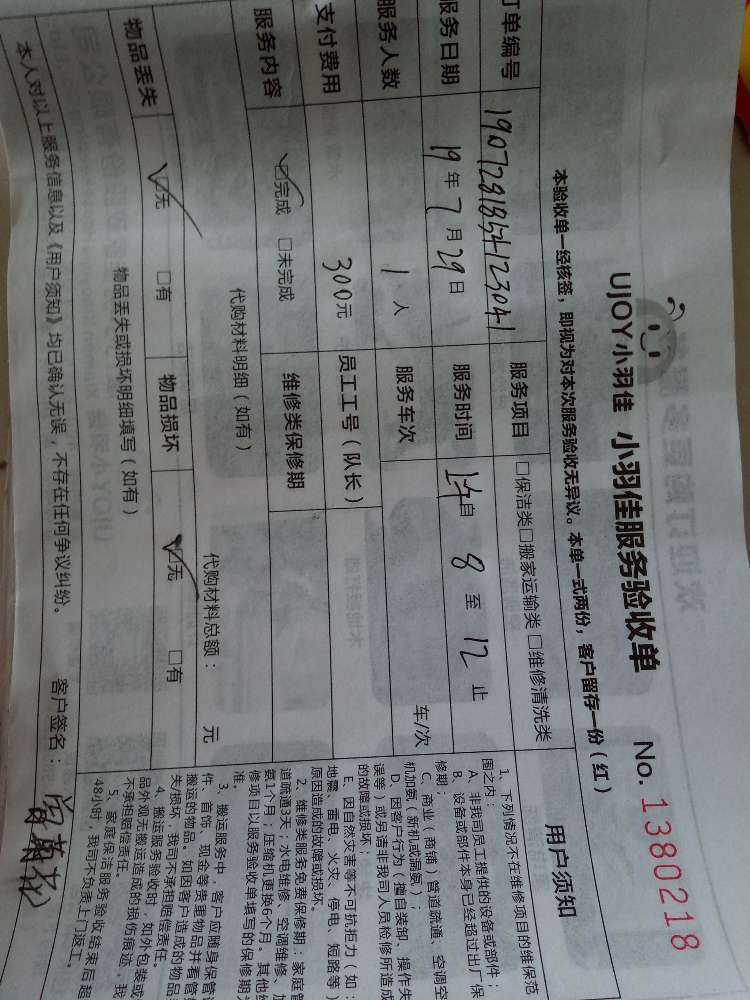 UJOY小羽佳 小羽佳服务验收单 No. 1380218
本验收单一经核签，即视为对本次服务验收无异议。本单一式两份，客户留存一份（红）
订单编号 190728185412304-1 服务项目 □保洁类□搬家运输类□维修清洗类
服务日期 19年7月29日 服务时间 上午自 8 至 12 止
服务人数 1人 服务车次 车/次
支付费用 300元 员工工号（队长）
服务内容 ☑完成 □未完成 维修类保修期
代购材料明细（如有） 代购材料总额： 元
物品丢失 ☑无 □有 物品损坏 ☑无 □有
物品丢失或损坏明细填写（如有）
本人对以上服务信息以及《用户须知》均已确认无误，不存在任何争议纠纷。 客户签名：
用户须知
1、下列情况不在维修项目的维保范
围之内：
A、非我司员工提供的设备或部件；
B、设备或部件本身已经超过出厂保
修期；
C、商业（商铺）管道疏通、空调空
机加氨（新机或漏氨）；
D、因客户行为（擅自装卸、操作失
误等）或另请非我司人员检修所造成
的故障或损坏；
E、因自然灾害等不可抗拒力（如：
地震、雷电、火灾、停电、短路等）
原因造成的故障或损坏。
2、维修类服务免费保修期：家庭管
道疏通3天；水电维修、空调维修、加
氨1个月；压缩机更换6个月。其他维
修项目以服务验收单填写的保修期为
准。
3、搬运服务中，客户应随身保管证
件、首饰、现金等贵重物品并看管
搬运的物品。如因客户造成的物品
失/损坏，我司不承担赔偿责任。
4、搬运服务验收时，如外包装或
品外观无搬运造成的损伤痕迹，我
不承担赔偿责任。
5、家庭保洁服务验收结束后超
48小时，我司不负责上门返工。